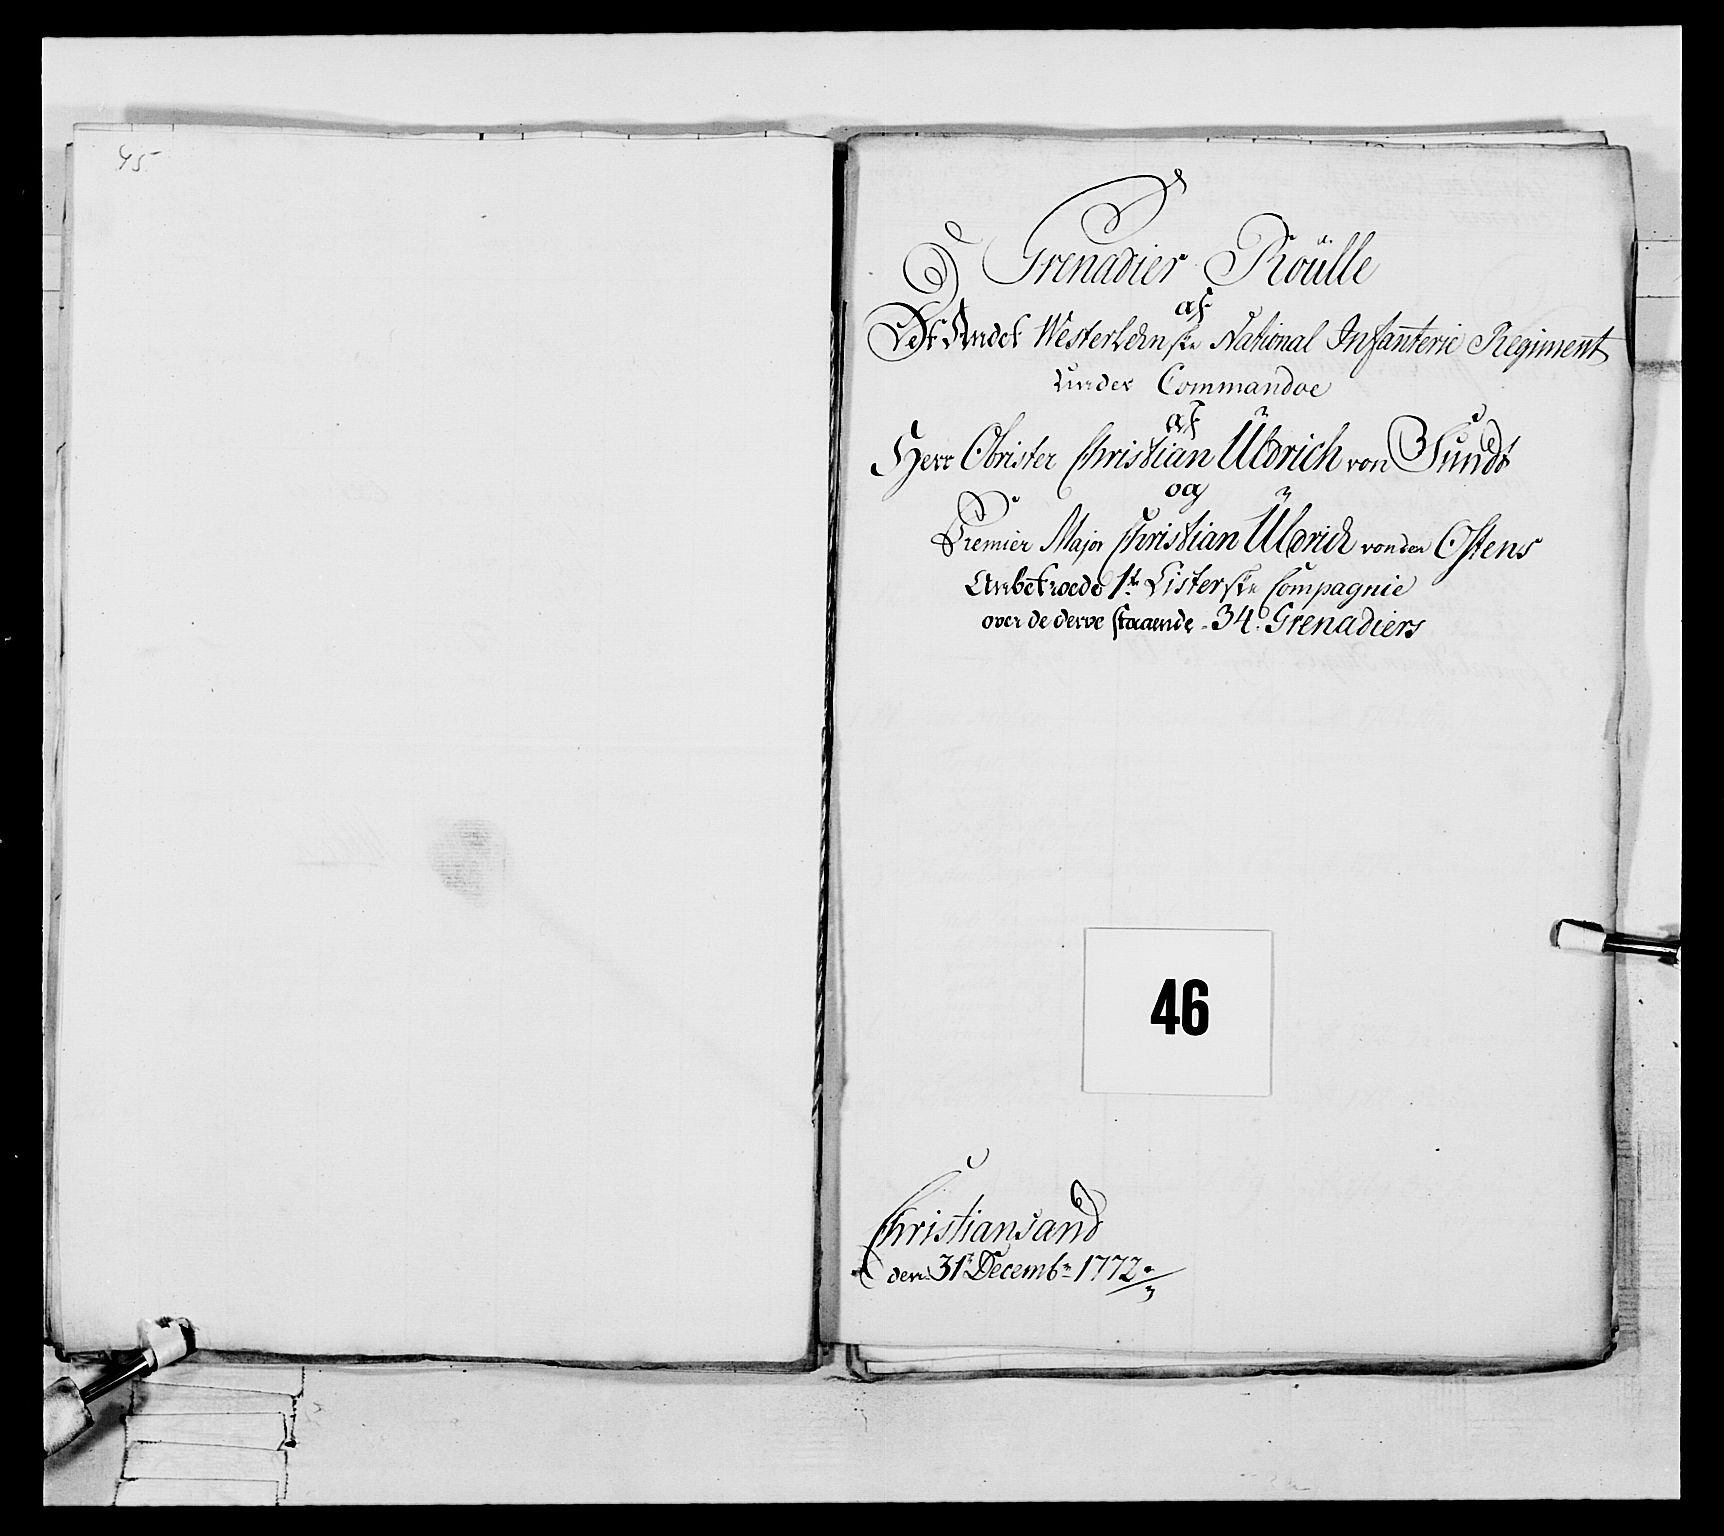 45
Grenadier Roülle
af
Det Andet Westerlehnske National Infanterie Regiment
under Commandoe
af
Herr Obrister Christian Üldrich von Sundt
og
Premier Major Christian Üldrich von den Ostens
Anbetroede 1te Listerske Compagnie
over de derve staaende 34 Grenadiers
46
Christiansand
den 31te Decembr 1772